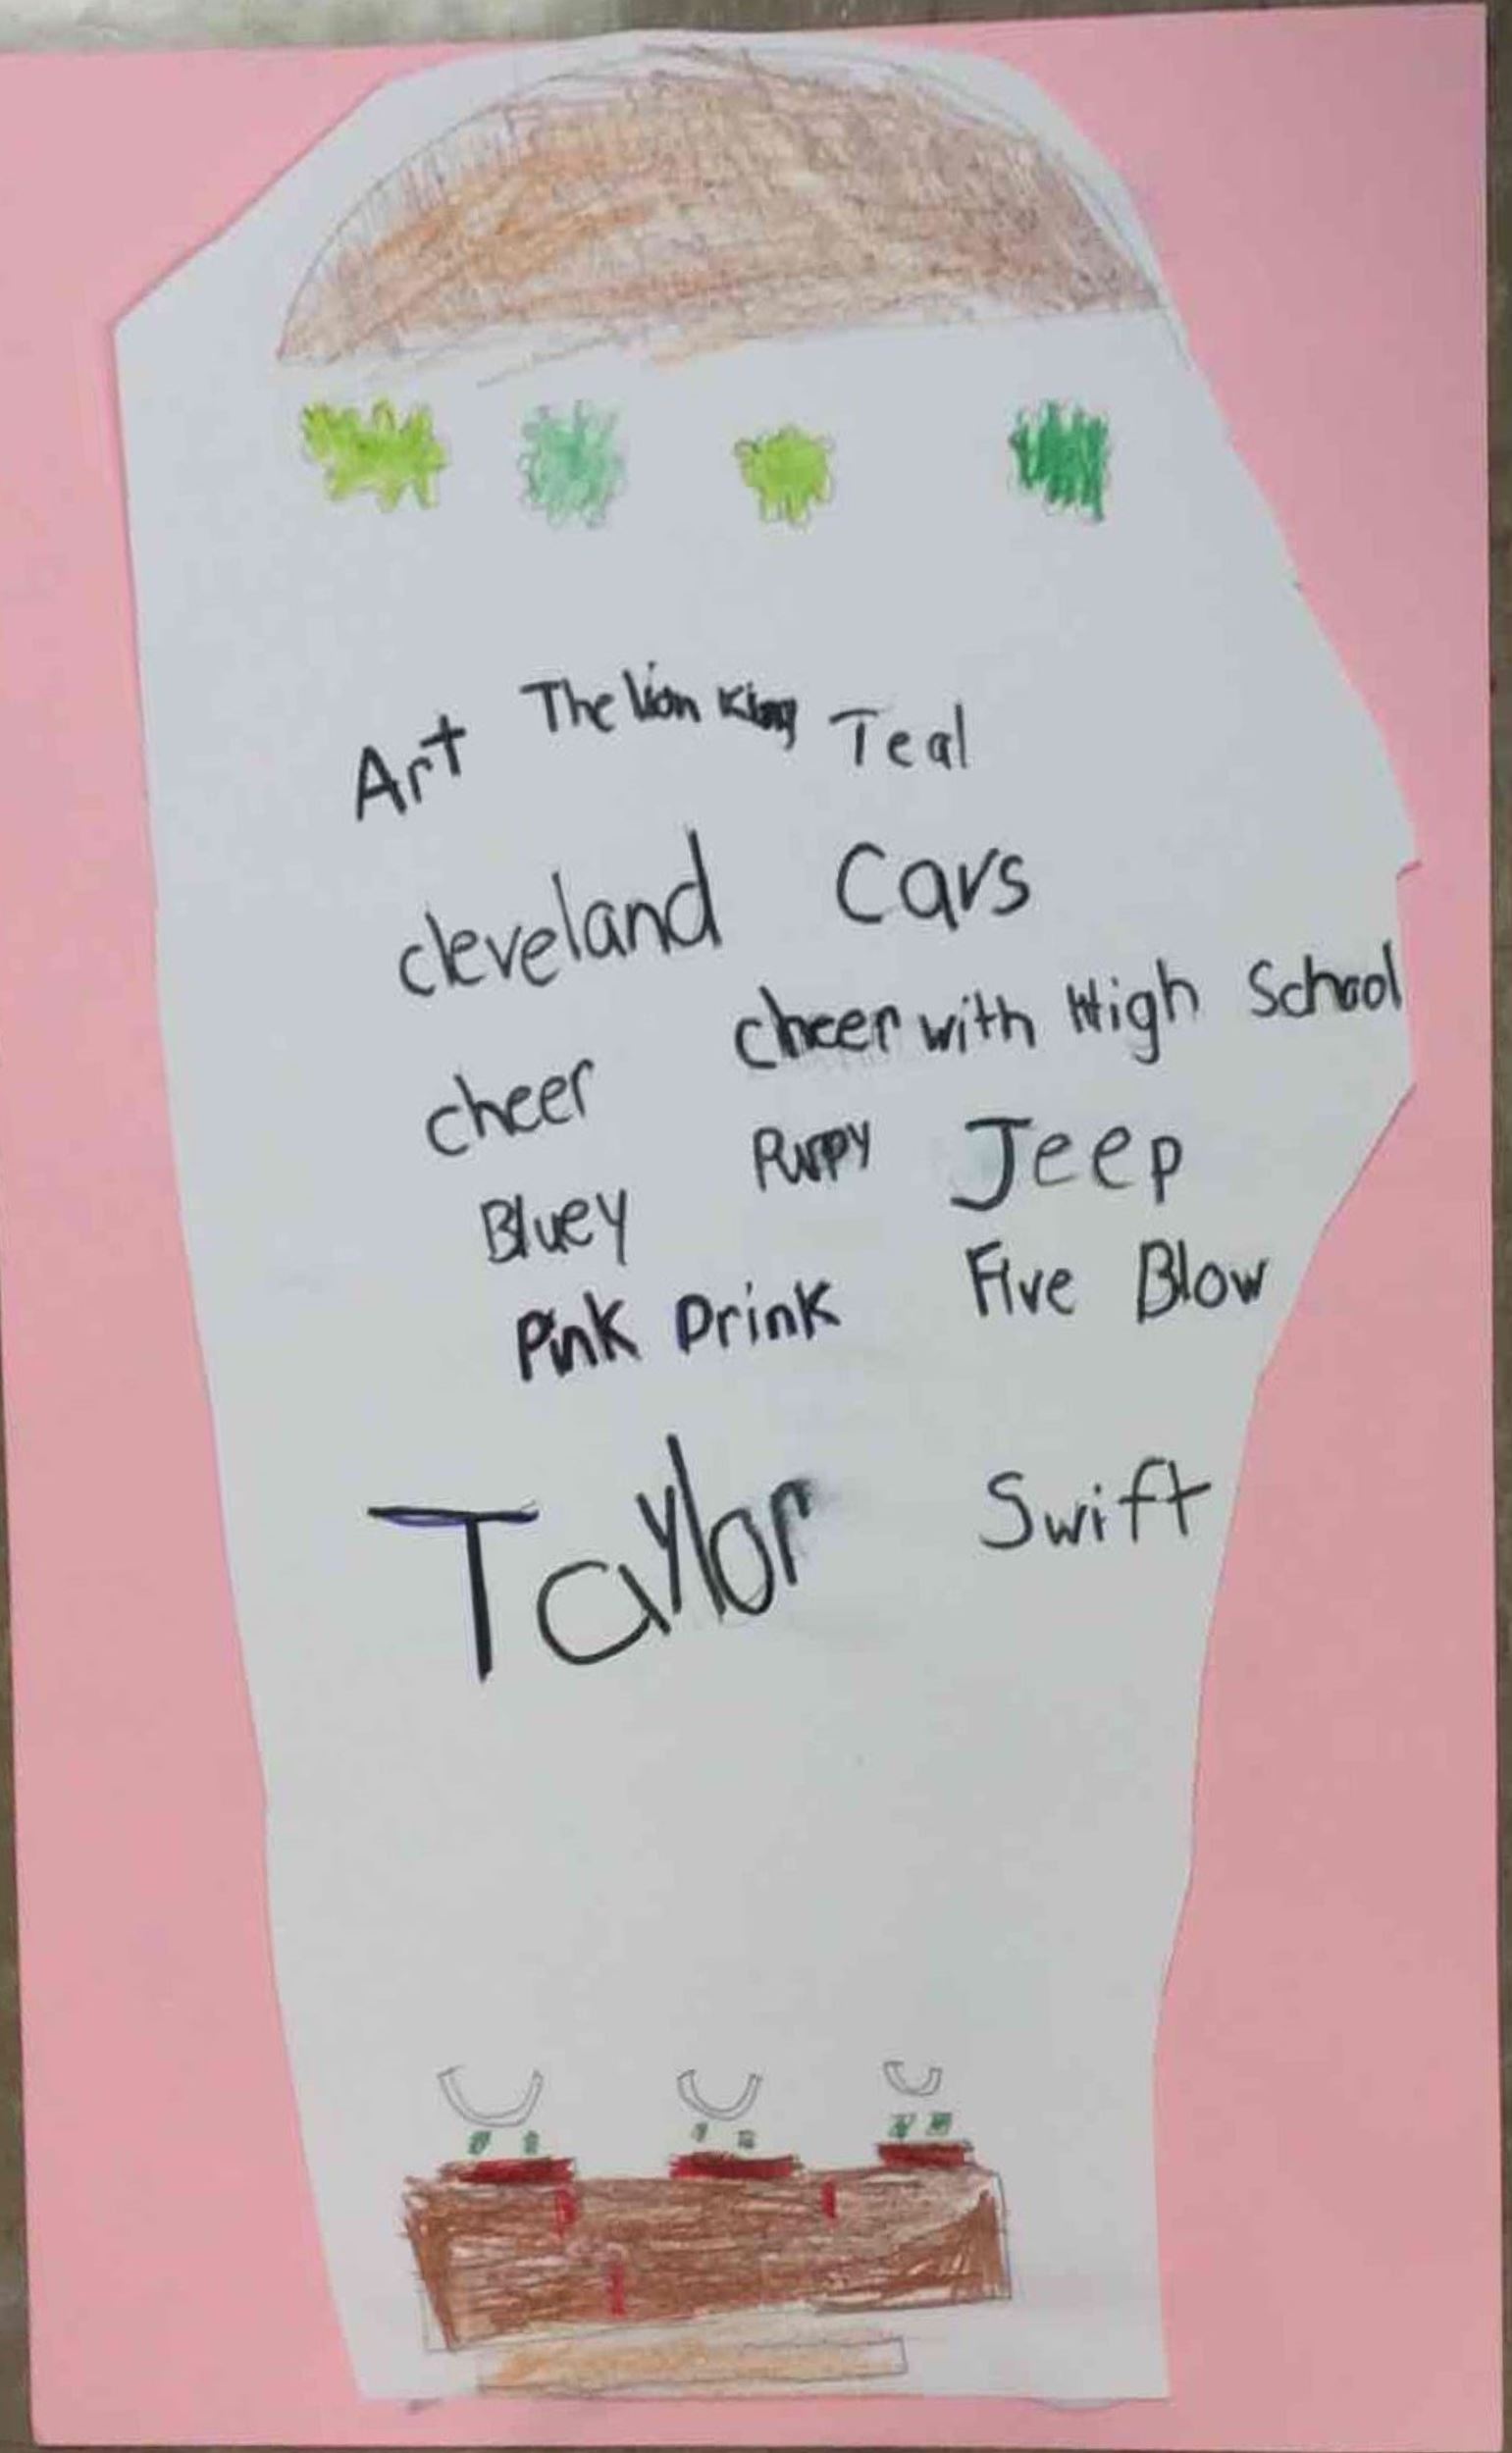 Art The lion King Teal
cleveland Cavs
cheer cheer with High School
Bluey Puppy Jeep
Pink Drink Five Blow
Taylor Swift